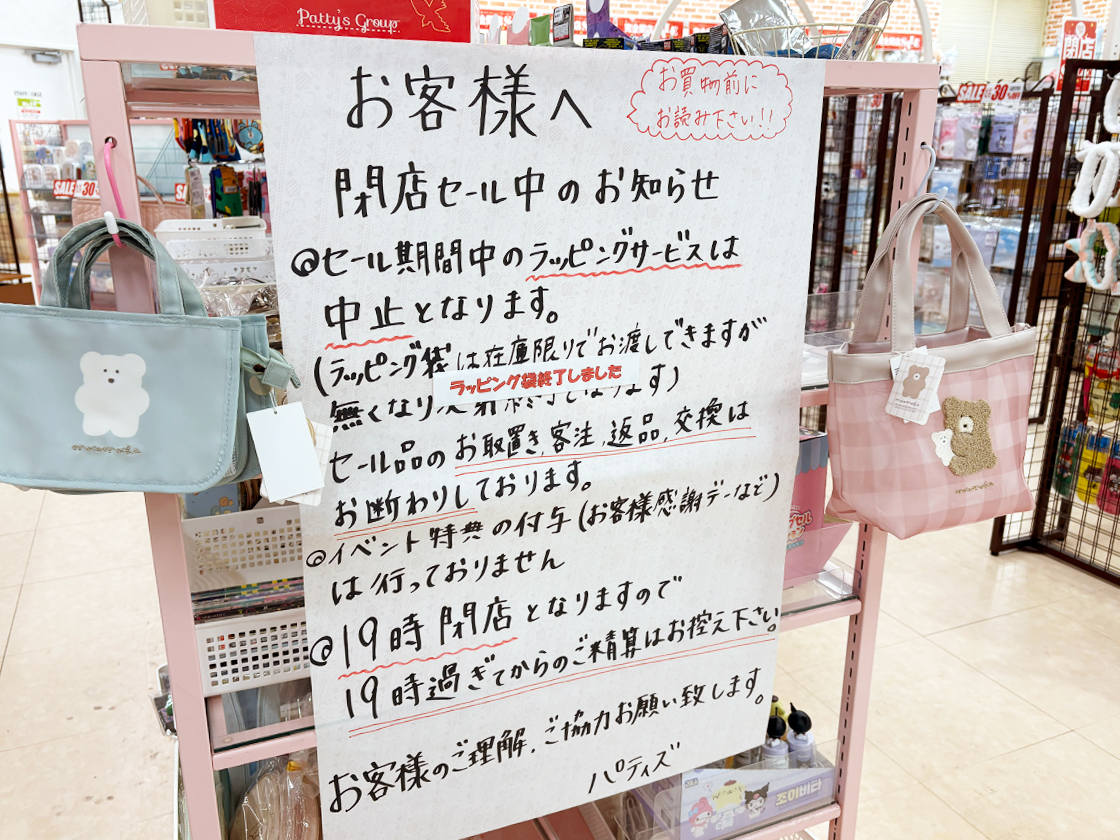 Patty's Group
お客様へ
お買物前に
お読み下さい!!
閉店セール中のお知らせ
◎セール期間中のラッピングサービスは
中止となります。
(ラッピング袋は在庫限りでお渡しできますが
ラッピング袋終了しました
無くなり次第終了となります)
セール品のお取置き,客注,返品,交換は
お断わりしております。
◎イベント特典の付与(お客様感謝デーなど)
は行っておりません
◎19時閉店となりますので
19時過ぎてからのご精算はお控え下さい。
お客様のご理解,ご協力お願い致します。
パティズ
SALE 30
SALE 30
閉店
조이비타